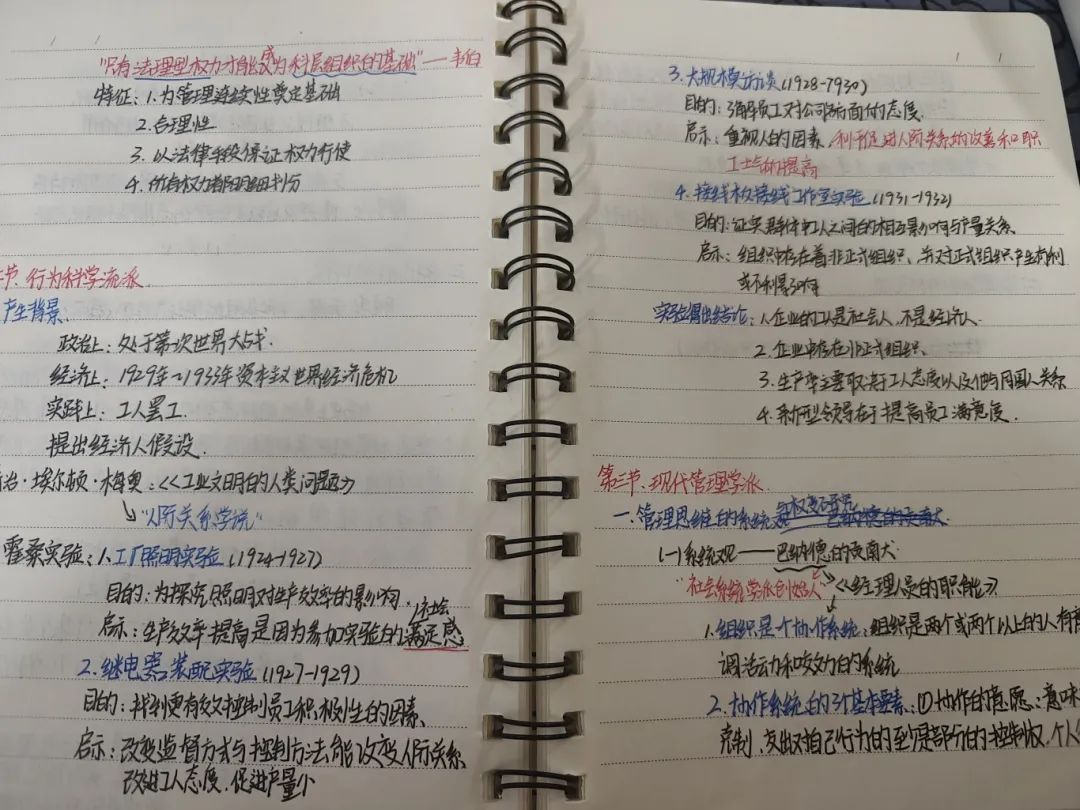 "只有法理型权力才能成为科层组织的基础"——韦伯
特征：1.为管理连续性奠定基础
2.合理性
3.以法律手段保证权力行使
4.所有权力都有明细划分
节.行为科学流派
产生背景
政治上：处于第次世界大战.
经济上：1929年~1933年资本主义世界经济危机
实践上：工人罢工.
提出经济人假设.
治·埃尔顿·梅奥：<<工业文明的人类问题>>
↘"人际关系学说"
霍桑实验：1.工厂照明实验（1924-1927）
目的：为探究照明对生产效率的影响.
启示：生产效率提高是因为参加实验的满足感
2.继电器装配实验（1927-1929）
目的：找到更有效控制员工积极性的因素
启示：改变监督方式与控制方法能改变人际关系
改进工人态度.促进产量
3.大规模访谈（1928-1930）
目的：了解员工对公司方面的态度.
启示：重视人的因素，利于促进人际关系的改善和职
工士气的提高
4.接线板接线工作室实验（1931-1932）
目的：证实群体中工人之间的相互影响与产量关系.
启示：组织中存在着非正式组织、并对正式组织产生有利
或不利影响
实验得出结论：1.企业的工人是社会人，不是经济人.
2.企业中存在非正式组织.
3.生产率主要取决于工人态度以及他与周围人关系
4.新型领导在于提高员工满意度.
第三节.现代管理学派
一.管理思维的系统观与权变研究
(一)系统观——巴纳德的贡献
"社会系统学派创始人" <<经理人员的职能>>
1.组织是个协作系统：组织是两个或两个以上的人有意
调活动和效力的系统
2.协作系统的3个基本要素：①协作的意愿：意味
克制.交出对自己行为的控制权.个人